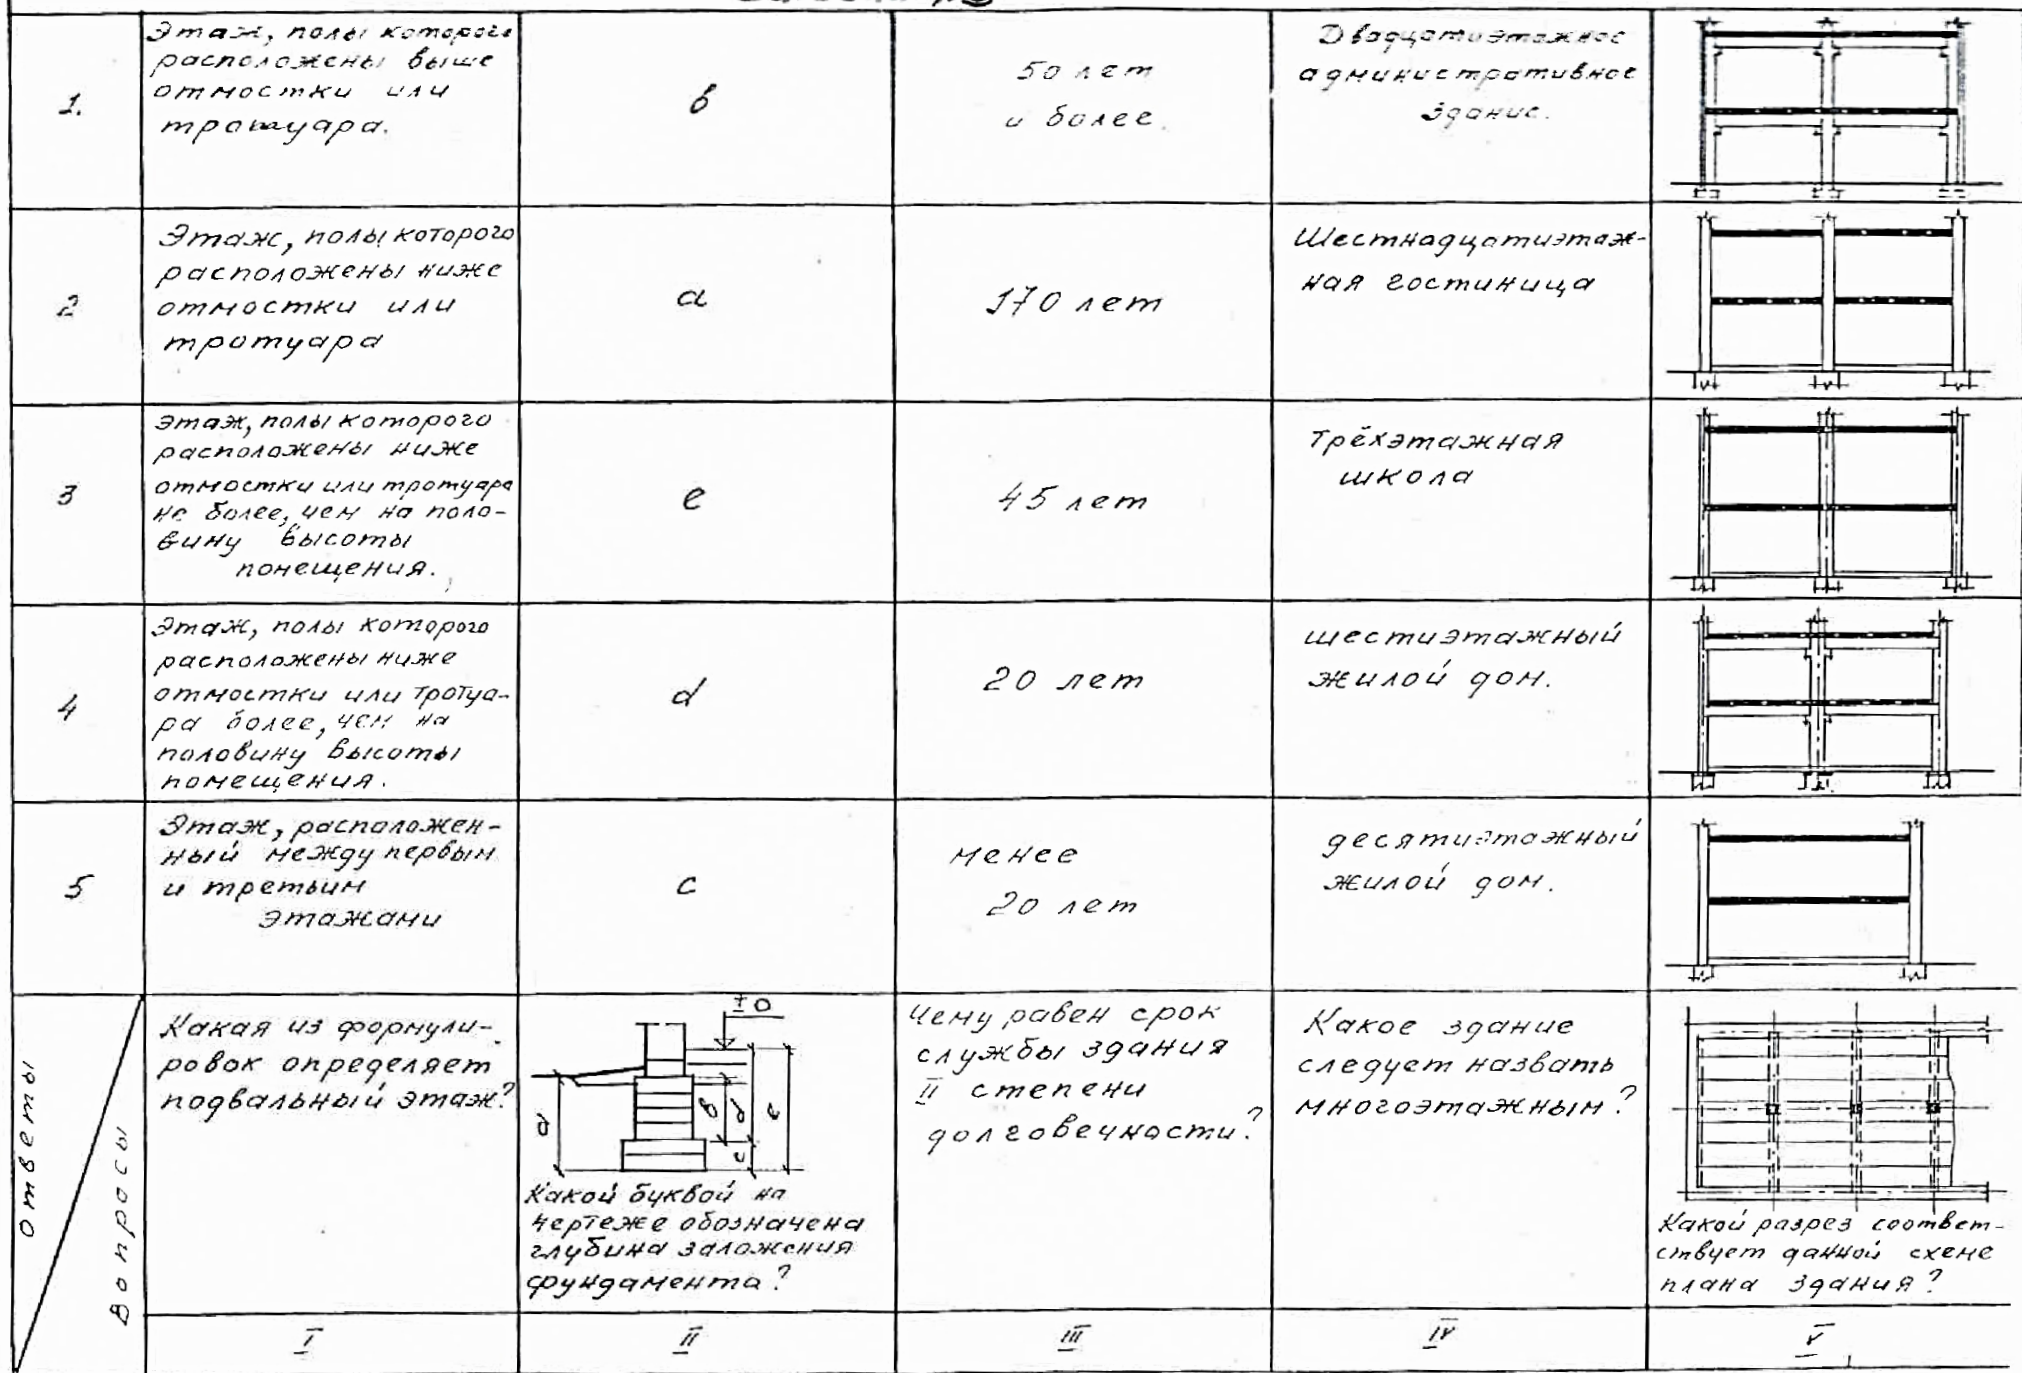 1.
Этаж, полы которого
расположены выше
отмостки или
тротуара.
в
50 лет
и более.
Двадцатиэтажное
административное
здание.
2
Этаж, полы которого
расположены ниже
отмостки или
тротуара
а
170 лет
Шестнадцатиэтаж-
ная гостиница
3
Этаж, полы которого
расположены ниже
отмостки или тротуара
не более, чем на поло-
вину высоты
помещения.
е
45 лет
трёхэтажная
школа
4
Этаж, полы которого
расположены ниже
отмостки или тротуа-
ра более, чем на
половину высоты
помещения.
d
20 лет
шестиэтажный
жилой дом.
5
Этаж, расположен-
ный между первым
и третьим
этажами
с
менее
20 лет
десятиэтажный
жилой дом.
Ответы
Вопросы
Какая из формули-
ровок определяет
подвальный этаж?
±0
а
в
d
е
с
Какой буквой на
чертеже обозначена
глубина заложения
фундамента?
Чему равен срок
службы здания
II степени
долговечности?
Какое здание
следует назвать
многоэтажным?
Какой разрез соответ-
ствует данной схеме
плана здания?
I
II
III
IV
V